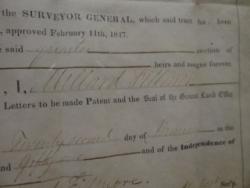 the SURVEYOR GENERAL, which said tract has been
, approved February 11th, 1847.
e said quarter section of
heirs and assigns forever.
, I, Millard Fillmore
Letters to be made Patent and the Seal of the General Land Office
Twenty second day of
and and of the Independence of